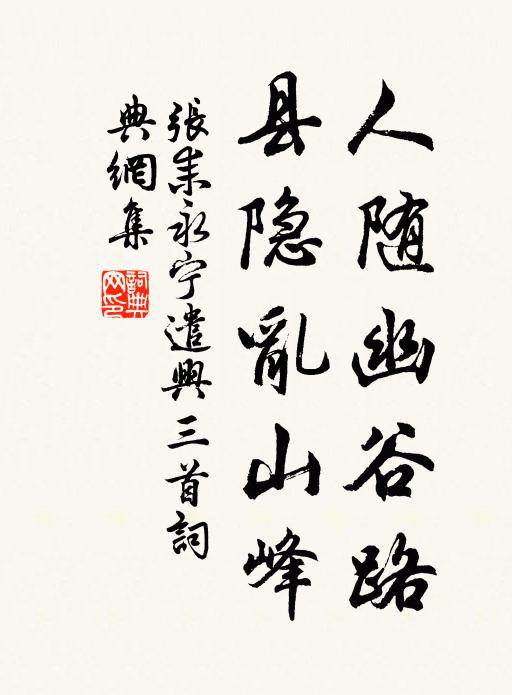 人随幽谷路
县隐亂山峰
張耒永宁遣興三首詞
典網集
詞典网印